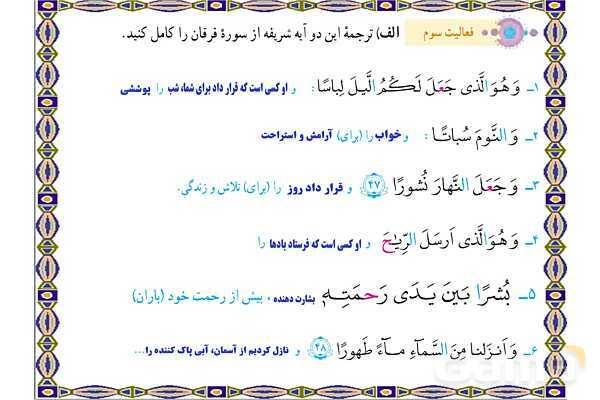 فعالیت سوم الف) ترجمهٔ این دو آیه شریفه از سورهٔ فرقان را کامل کنید.
۱ـ وَ هُوَ الَّذی جَعَلَ لَكُمُ الَّیلَ لِباسًا: و او کسی است که قرار داد برای شما، شب را پوششی
۲ـ وَ النَّومَ سُباتًا: و خواب را (برای) آرامش و استراحت
۳ـ وَ جَعَلَ النَّهارَ نُشورًا ﴿۴۷﴾ و قرار داد روز را (برای) تلاش و زندگی.
۴ـ وَ هُوَ الَّذی اَرسَلَ الرِّیٰحَ و او کسی است که فرستاد بادها را
۵ـ بُشرًا بَینَ یَدَی رَحمَتِهٖ بشارت دهنده، پیش از رحمت خود (باران)
۶ـ وَ اَنزَلنا مِنَ السَّمآءِ مآءً طَهورًا ﴿۴۸﴾ و نازل کردیم از آسمان، آبی پاک کننده را...
Gama